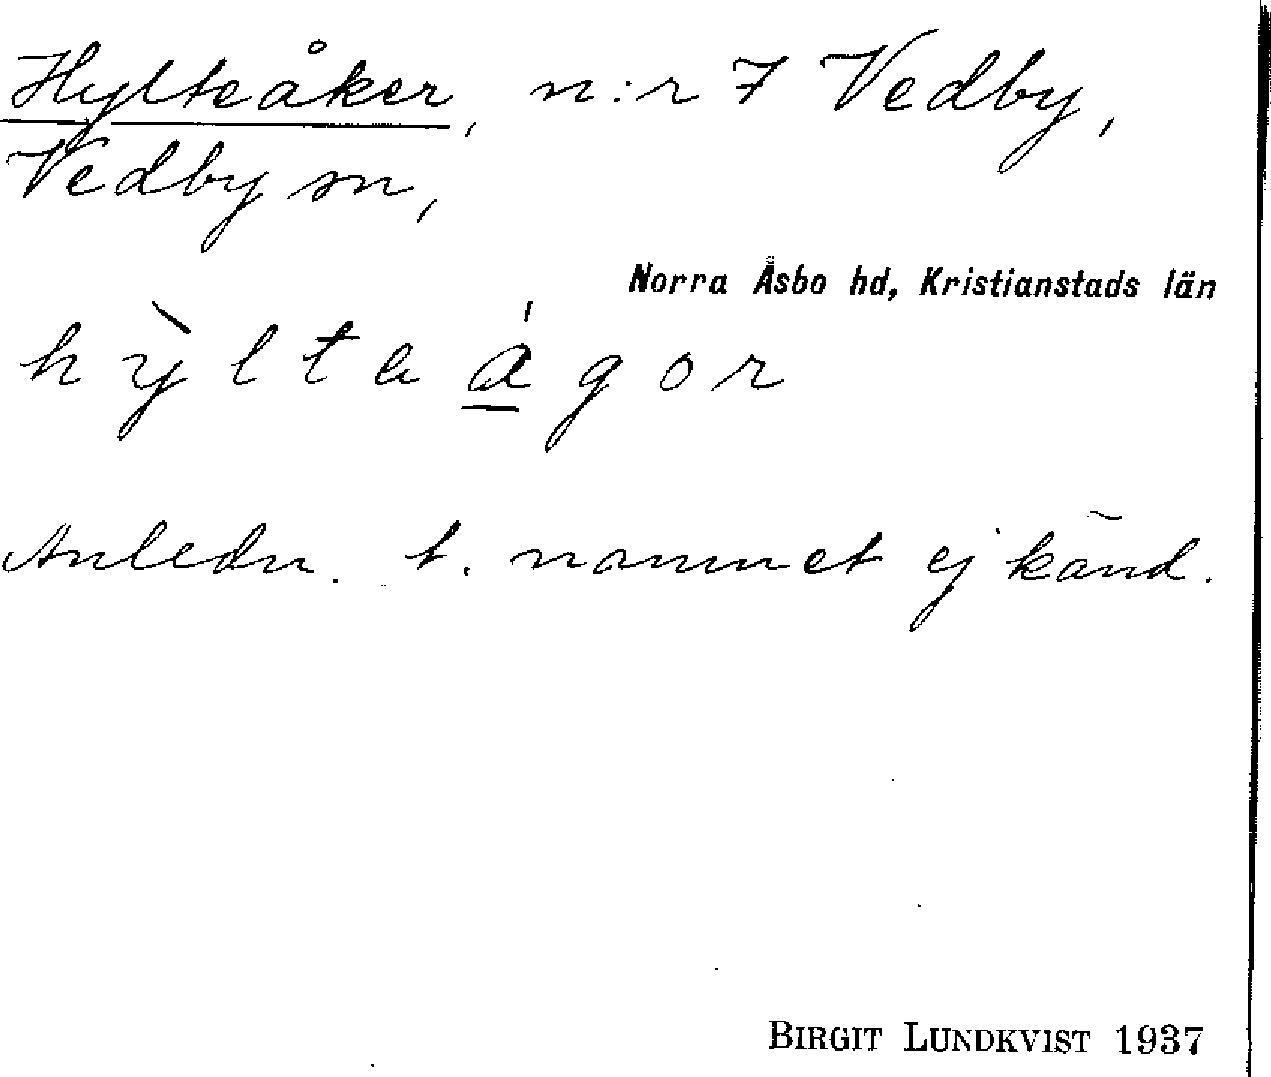 Hylteåker, n:r 7 Vedby,
Vedby sn,
Norra Åsbo hd, Kristianstads län
hỳlteágor
Anledn. t. namnet ej känd.
BIRGIT LUNDKVIST 1937